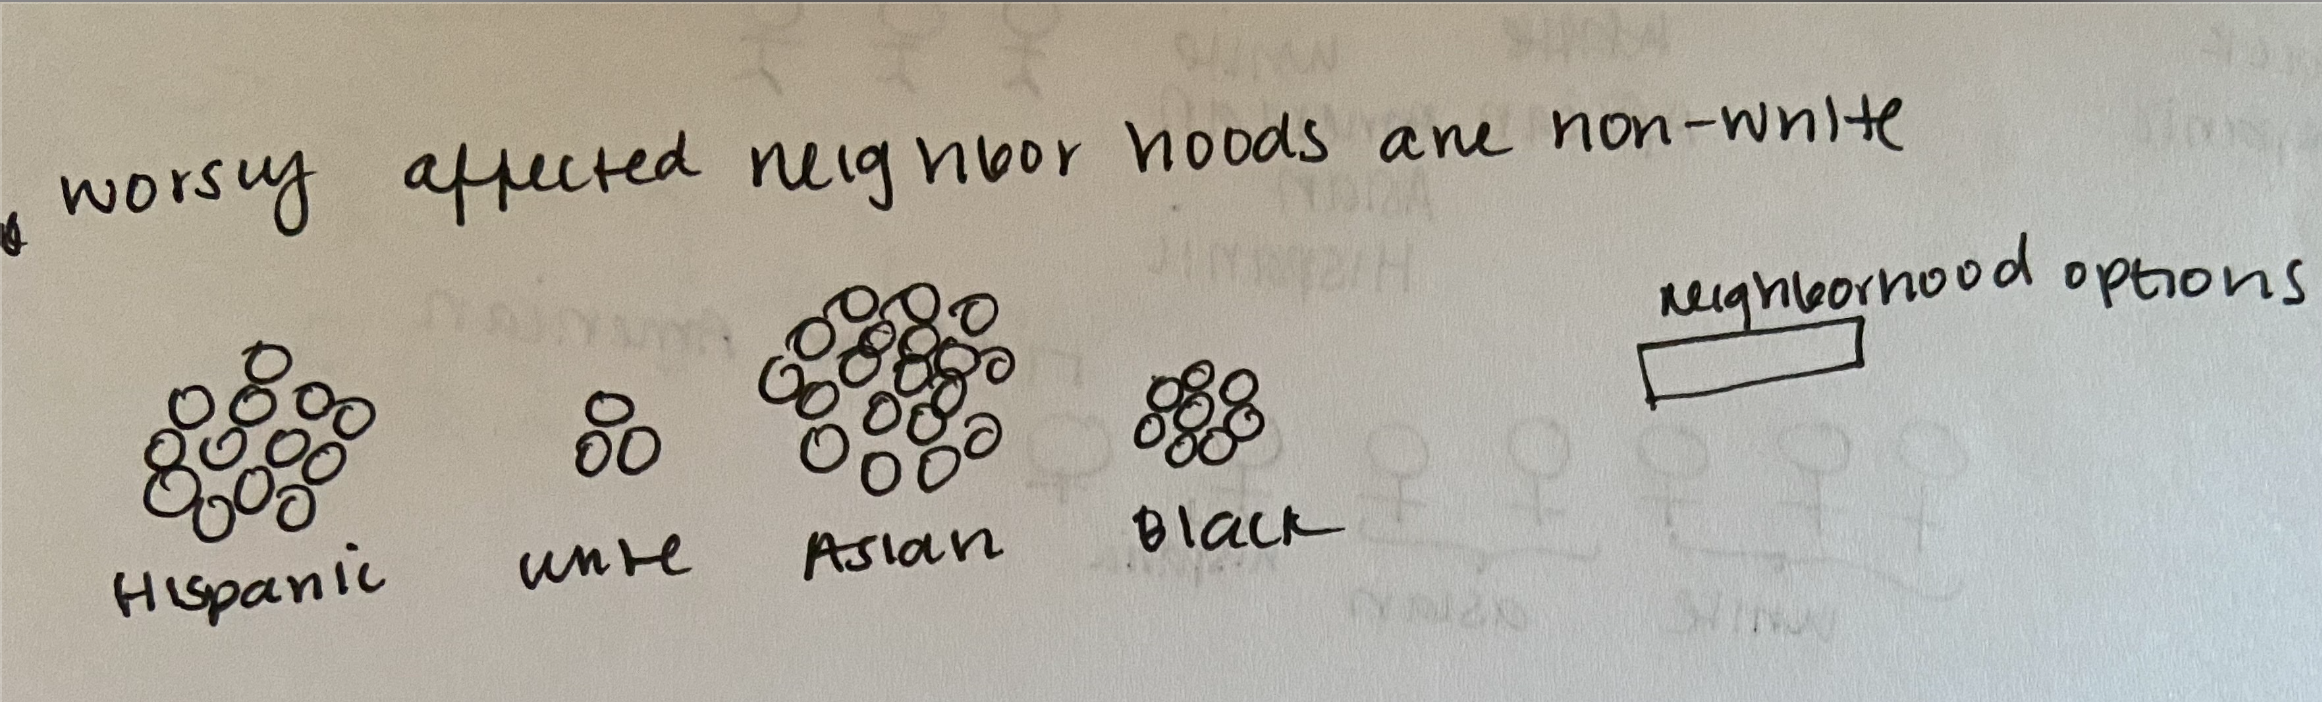 worsly affected neighborhoods are non-white
neighborhood options
Hispanic white Asian Black